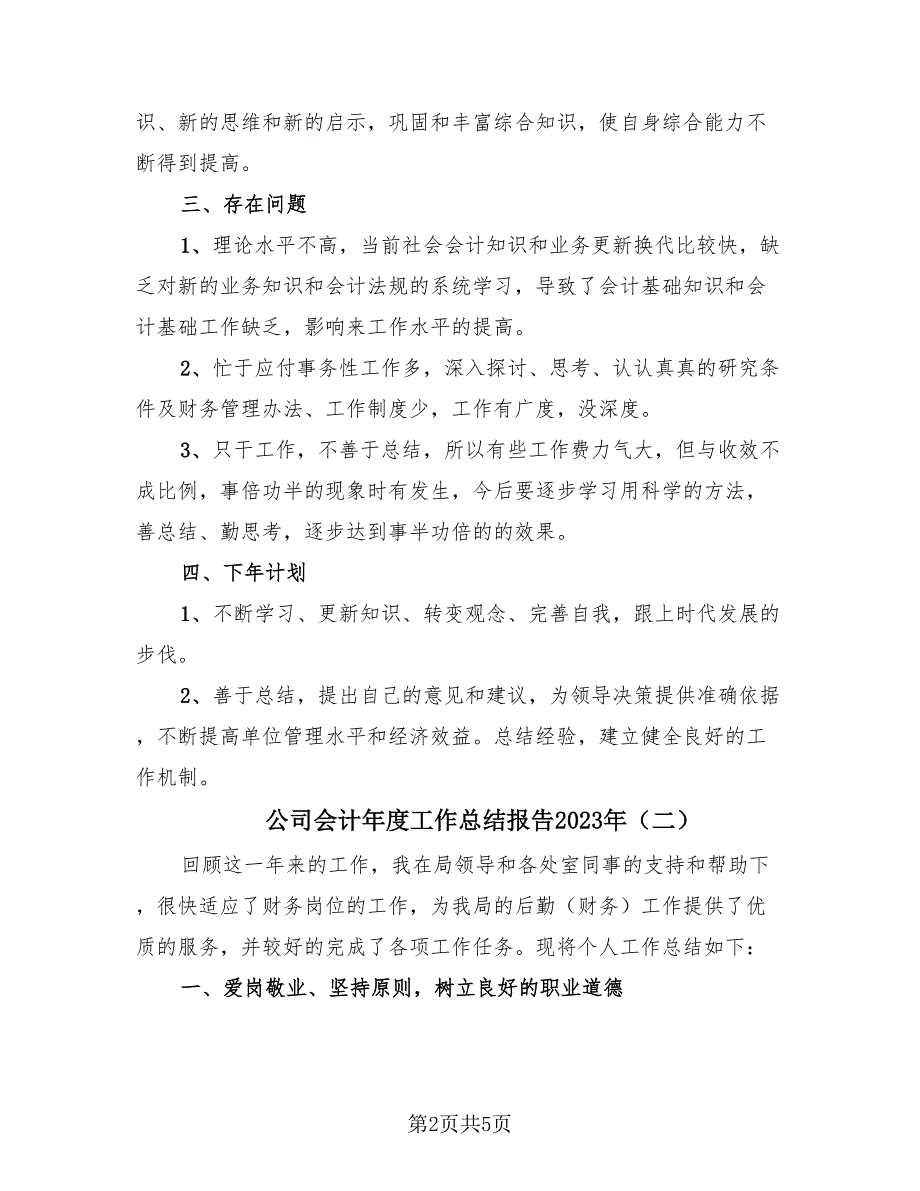 识、新的思维和新的启示，巩固和丰富综合知识，使自身综合能力不
断得到提高。
三、存在问题
1、理论水平不高，当前社会会计知识和业务更新换代比较快，缺
乏对新的业务知识和会计法规的系统学习，导致了会计基础知识和会
计基础工作缺乏，影响来工作水平的提高。
2、忙于应付事务性工作多，深入探讨、思考、认认真真的研究条
件及财务管理办法、工作制度少，工作有广度，没深度。
3、只干工作，不善于总结，所以有些工作费力气大，但与收效不
成比例，事倍功半的现象时有发生，今后要逐步学习用科学的方法，
善总结、勤思考，逐步达到事半功倍的的效果。
四、下年计划
1、不断学习、更新知识、转变观念、完善自我，跟上时代发展的
步伐。
2、善于总结，提出自己的意见和建议，为领导决策提供准确依据
，不断提高单位管理水平和经济效益。总结经验，建立健全良好的工
作机制。
公司会计年度工作总结报告2023年（二）
回顾这一年来的工作，我在局领导和各处室同事的支持和帮助下
，很快适应了财务岗位的工作，为我局的后勤（财务）工作提供了优
质的服务，并较好的完成了各项工作任务。现将个人工作总结如下：
一、爱岗敬业、坚持原则，树立良好的职业道德
第2页共5页